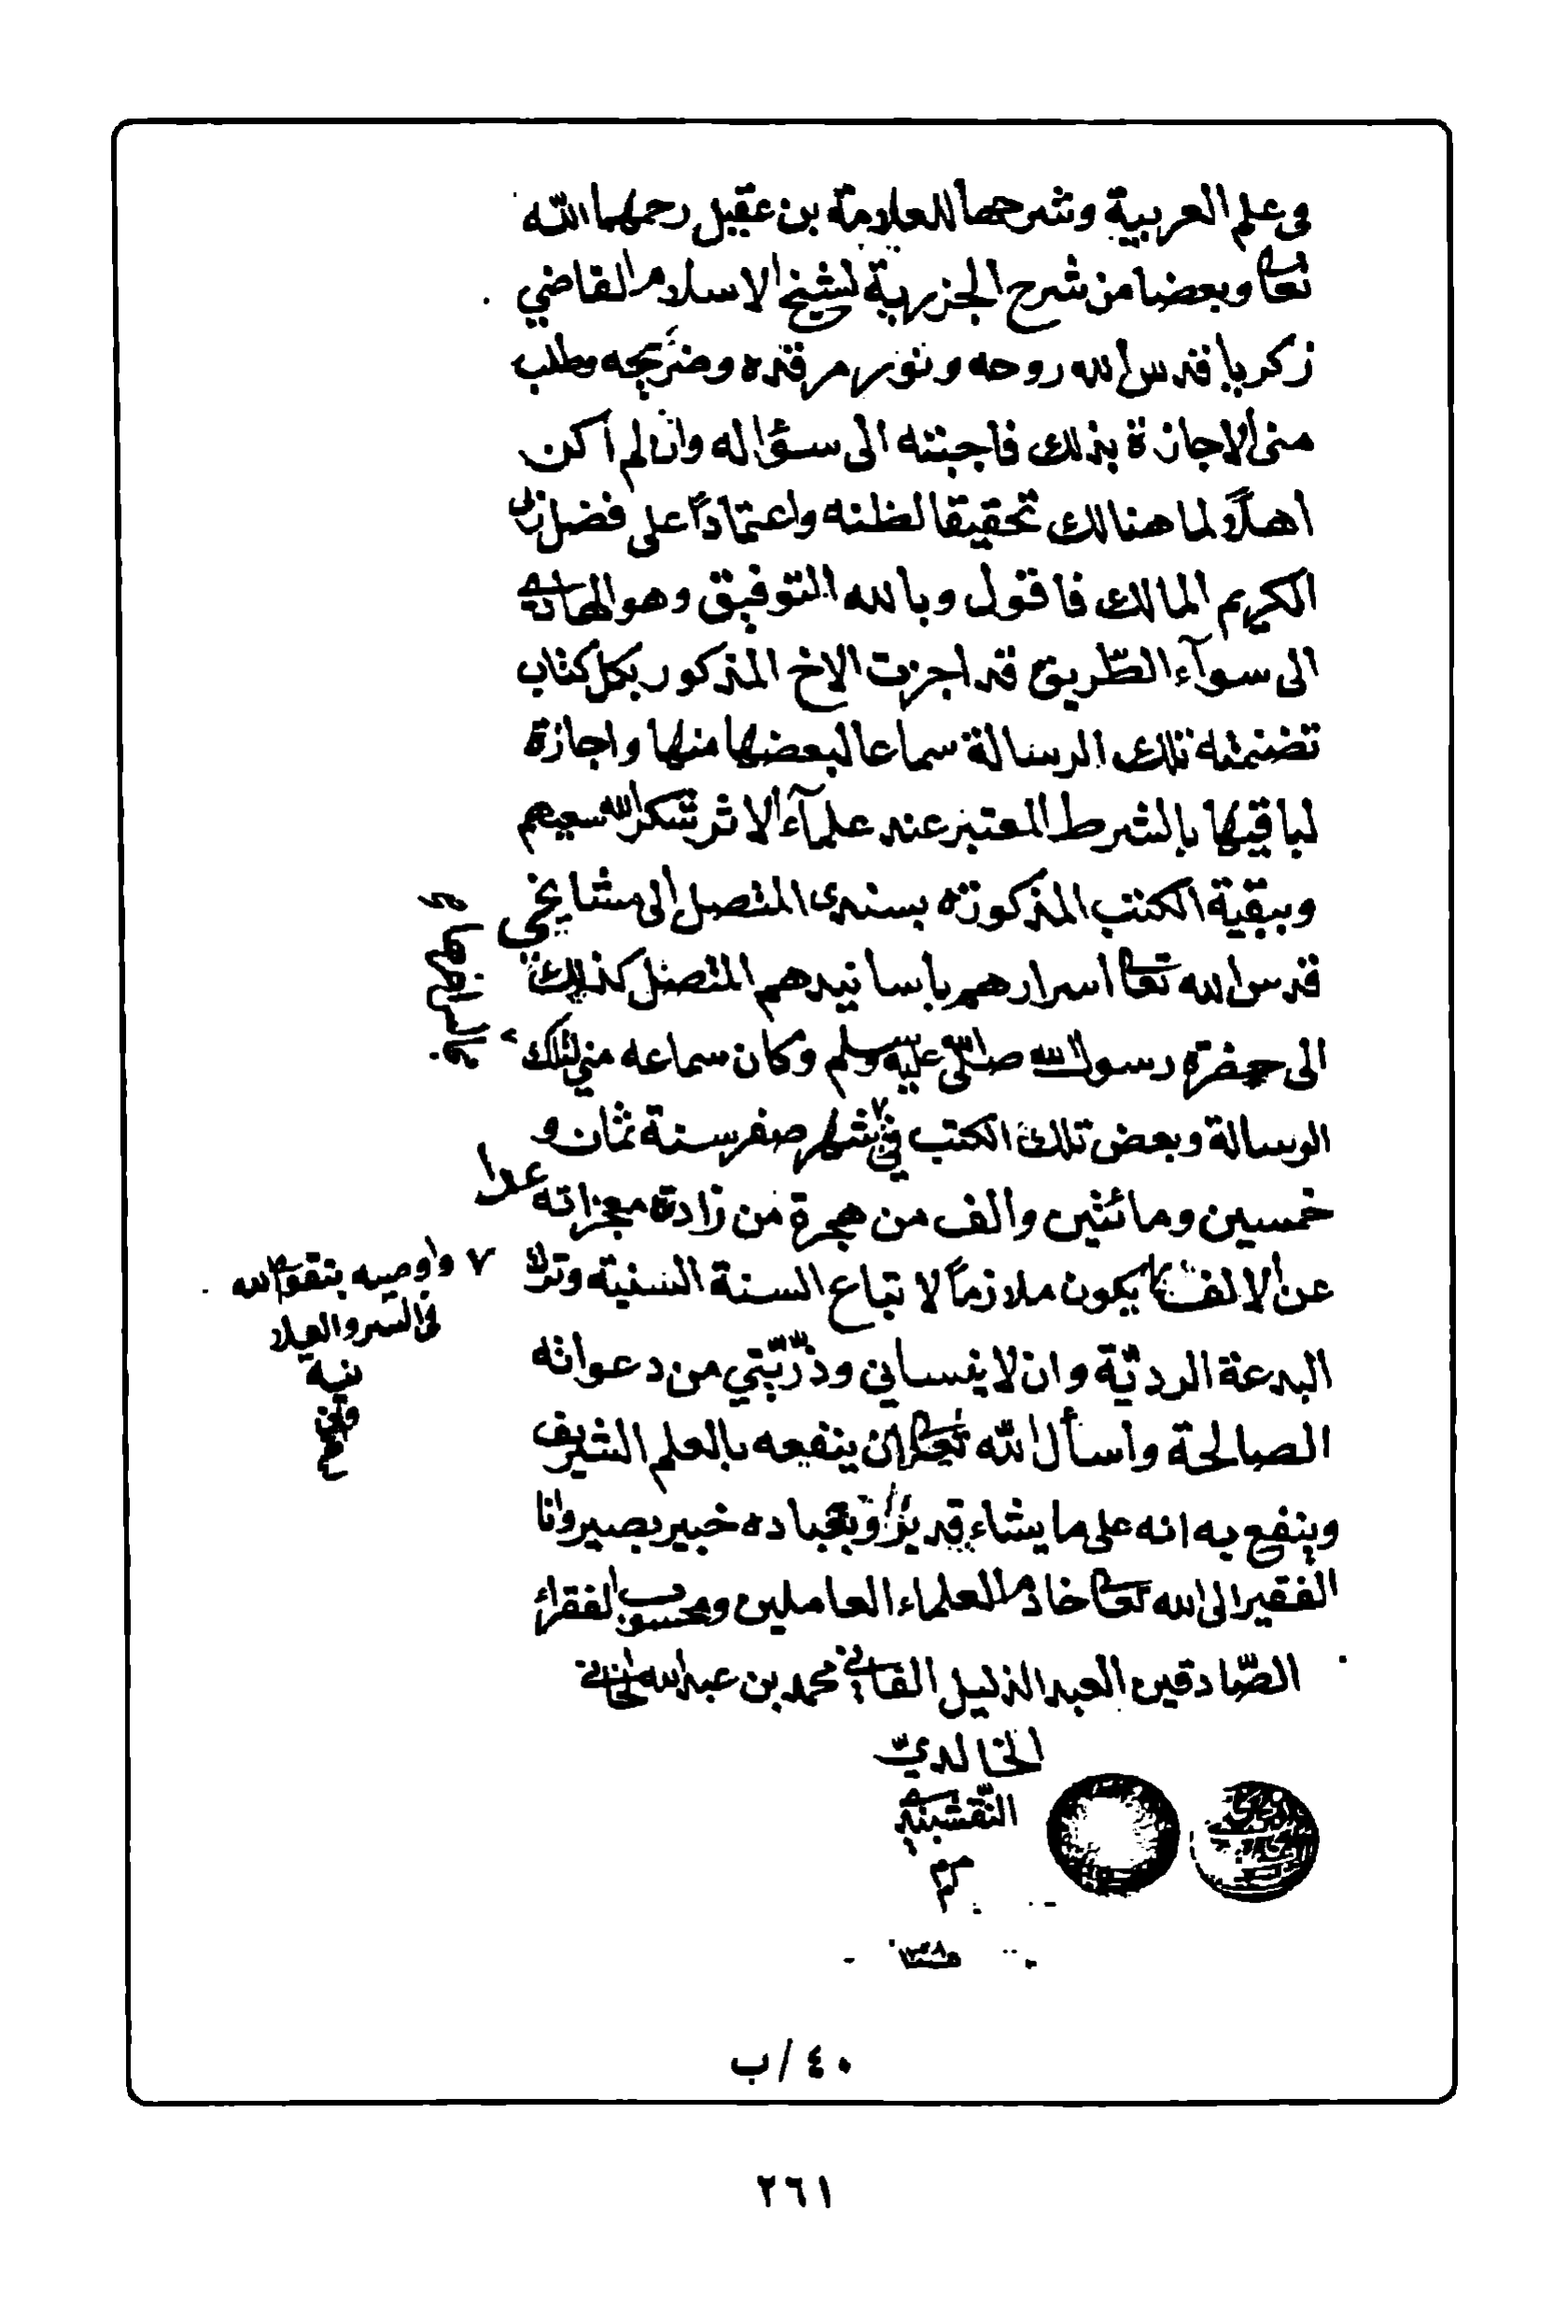 وفى علم العربية وشرحها للعلامة بن عقيل رحمهما الله
تعالى وبعضا من شرح الجزرية لشيخ الاسلام القاضي
زكريا قدس الله روحه ونور مرقده وضريحه وطلب
منى الاجازة بذلك فاجبته الى سؤاله وان لم اكن
اهلاً لما هنالك تحقيقا لظنه واعتماداً على فضل
الكريم المالك فاقول وبالله التوفيق وهو الهادي
الى سوآء الطّريق قد اجزت الاخ المذكور بكل كتاب
تضمنته تلك الرسالة سماعا لبعضها منها واجازة
لباقيها بالشرط المعتبر عند علمآء الاثر شكر الله سعيهم
وببقية الكتب المذكورة بسندى المتصل الى مشايخي
قدس الله تعالى اسرارهم باسانيدهم المتصل كذلك
الى حضرة رسول الله صلى الله عليه وسلم وكان سماعه مني لتلك
الرسالة وبعض تلك الكتب في شهر صفر سنة ثمان و
خمسين ومائتين والف من هجرة من زادة معجزاته عدا
عن الالف ٧ يكون ملازماً لاتباع السنة السنية وترك
٧ واوصيه بتقوى الله
فى السر والعلا
نية
وان
البدعة الرديّة وان لا ينساني وذرّيّتي من دعواته
الصالحة واسأل الله تعالى ان ينفعه بالعلم الشريف
وينفع به انه على ما يشاء قدير وبعباده خبير بصير وانا
الفقير الى الله تعالى خادم العلماء العاملين ومحسوب الفقراء
الصّادقين العبد الذليل الفاني محمد بن عبد الله الخاني
الخالديّ
النقشبندي
٤٠/ب
٢٦١